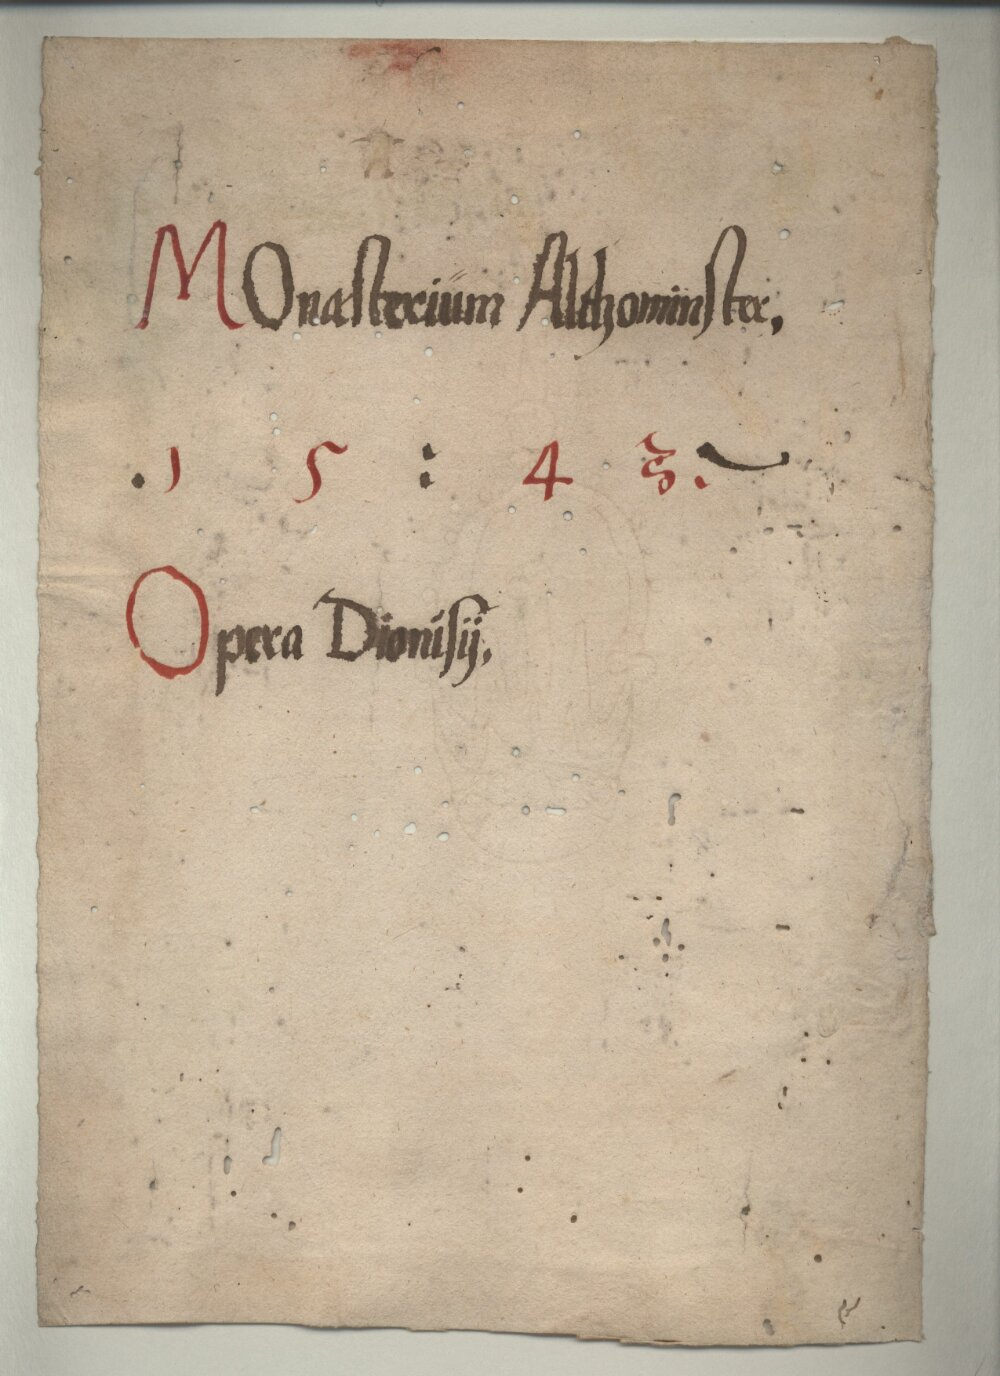 MOnasterium Allthominster,
.1 5 : 4 3.
Opera Dionisij,